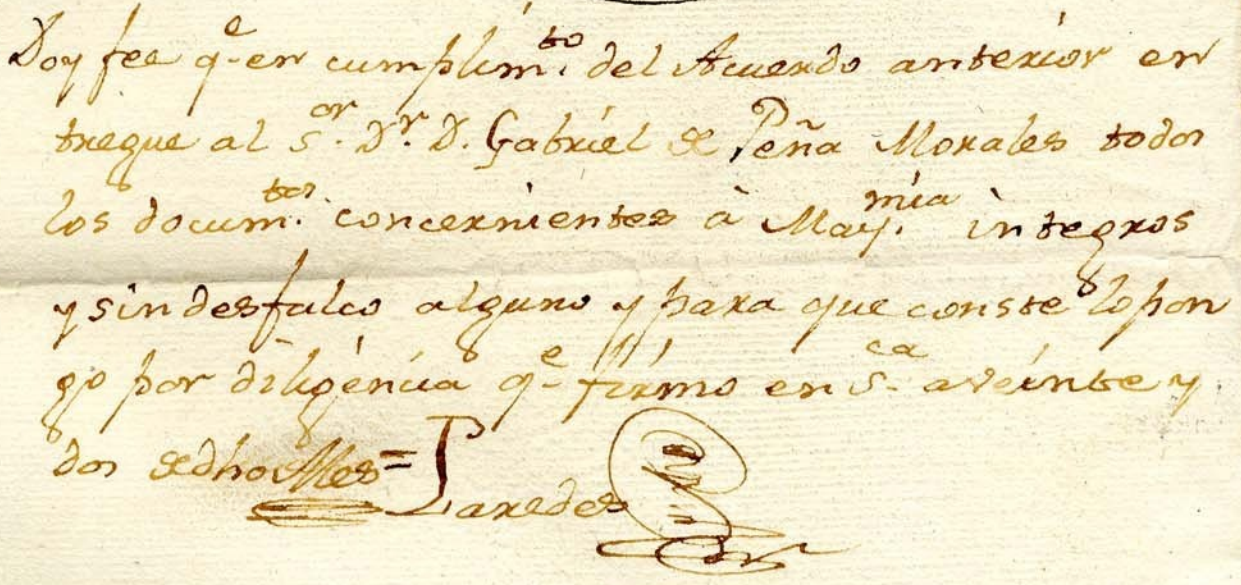 Doy fee q.e en cumplim.to del Acuerdo anterior en
tregue al S.or D.r D. Gabriel de Peña Morales todos
los docum.tos concernientes à May.mia integros
y sin desfalco alguno y para que conste lo pon
go por diligencia q.e firmo en S.ca a veinte y
dos de dho Mes = Paredes